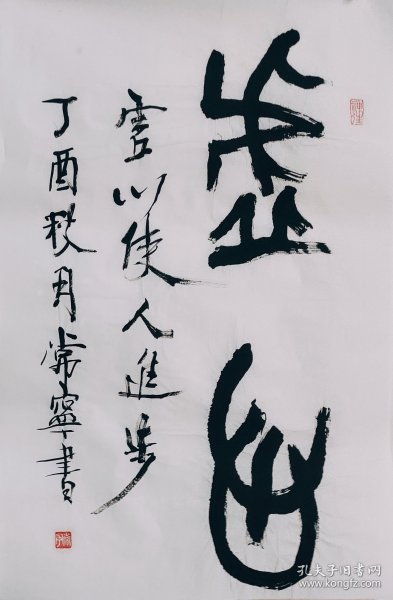 虚心
虚心使人進步
丁酉秋月常寧書
孔夫子旧书网
www.kongfz.com